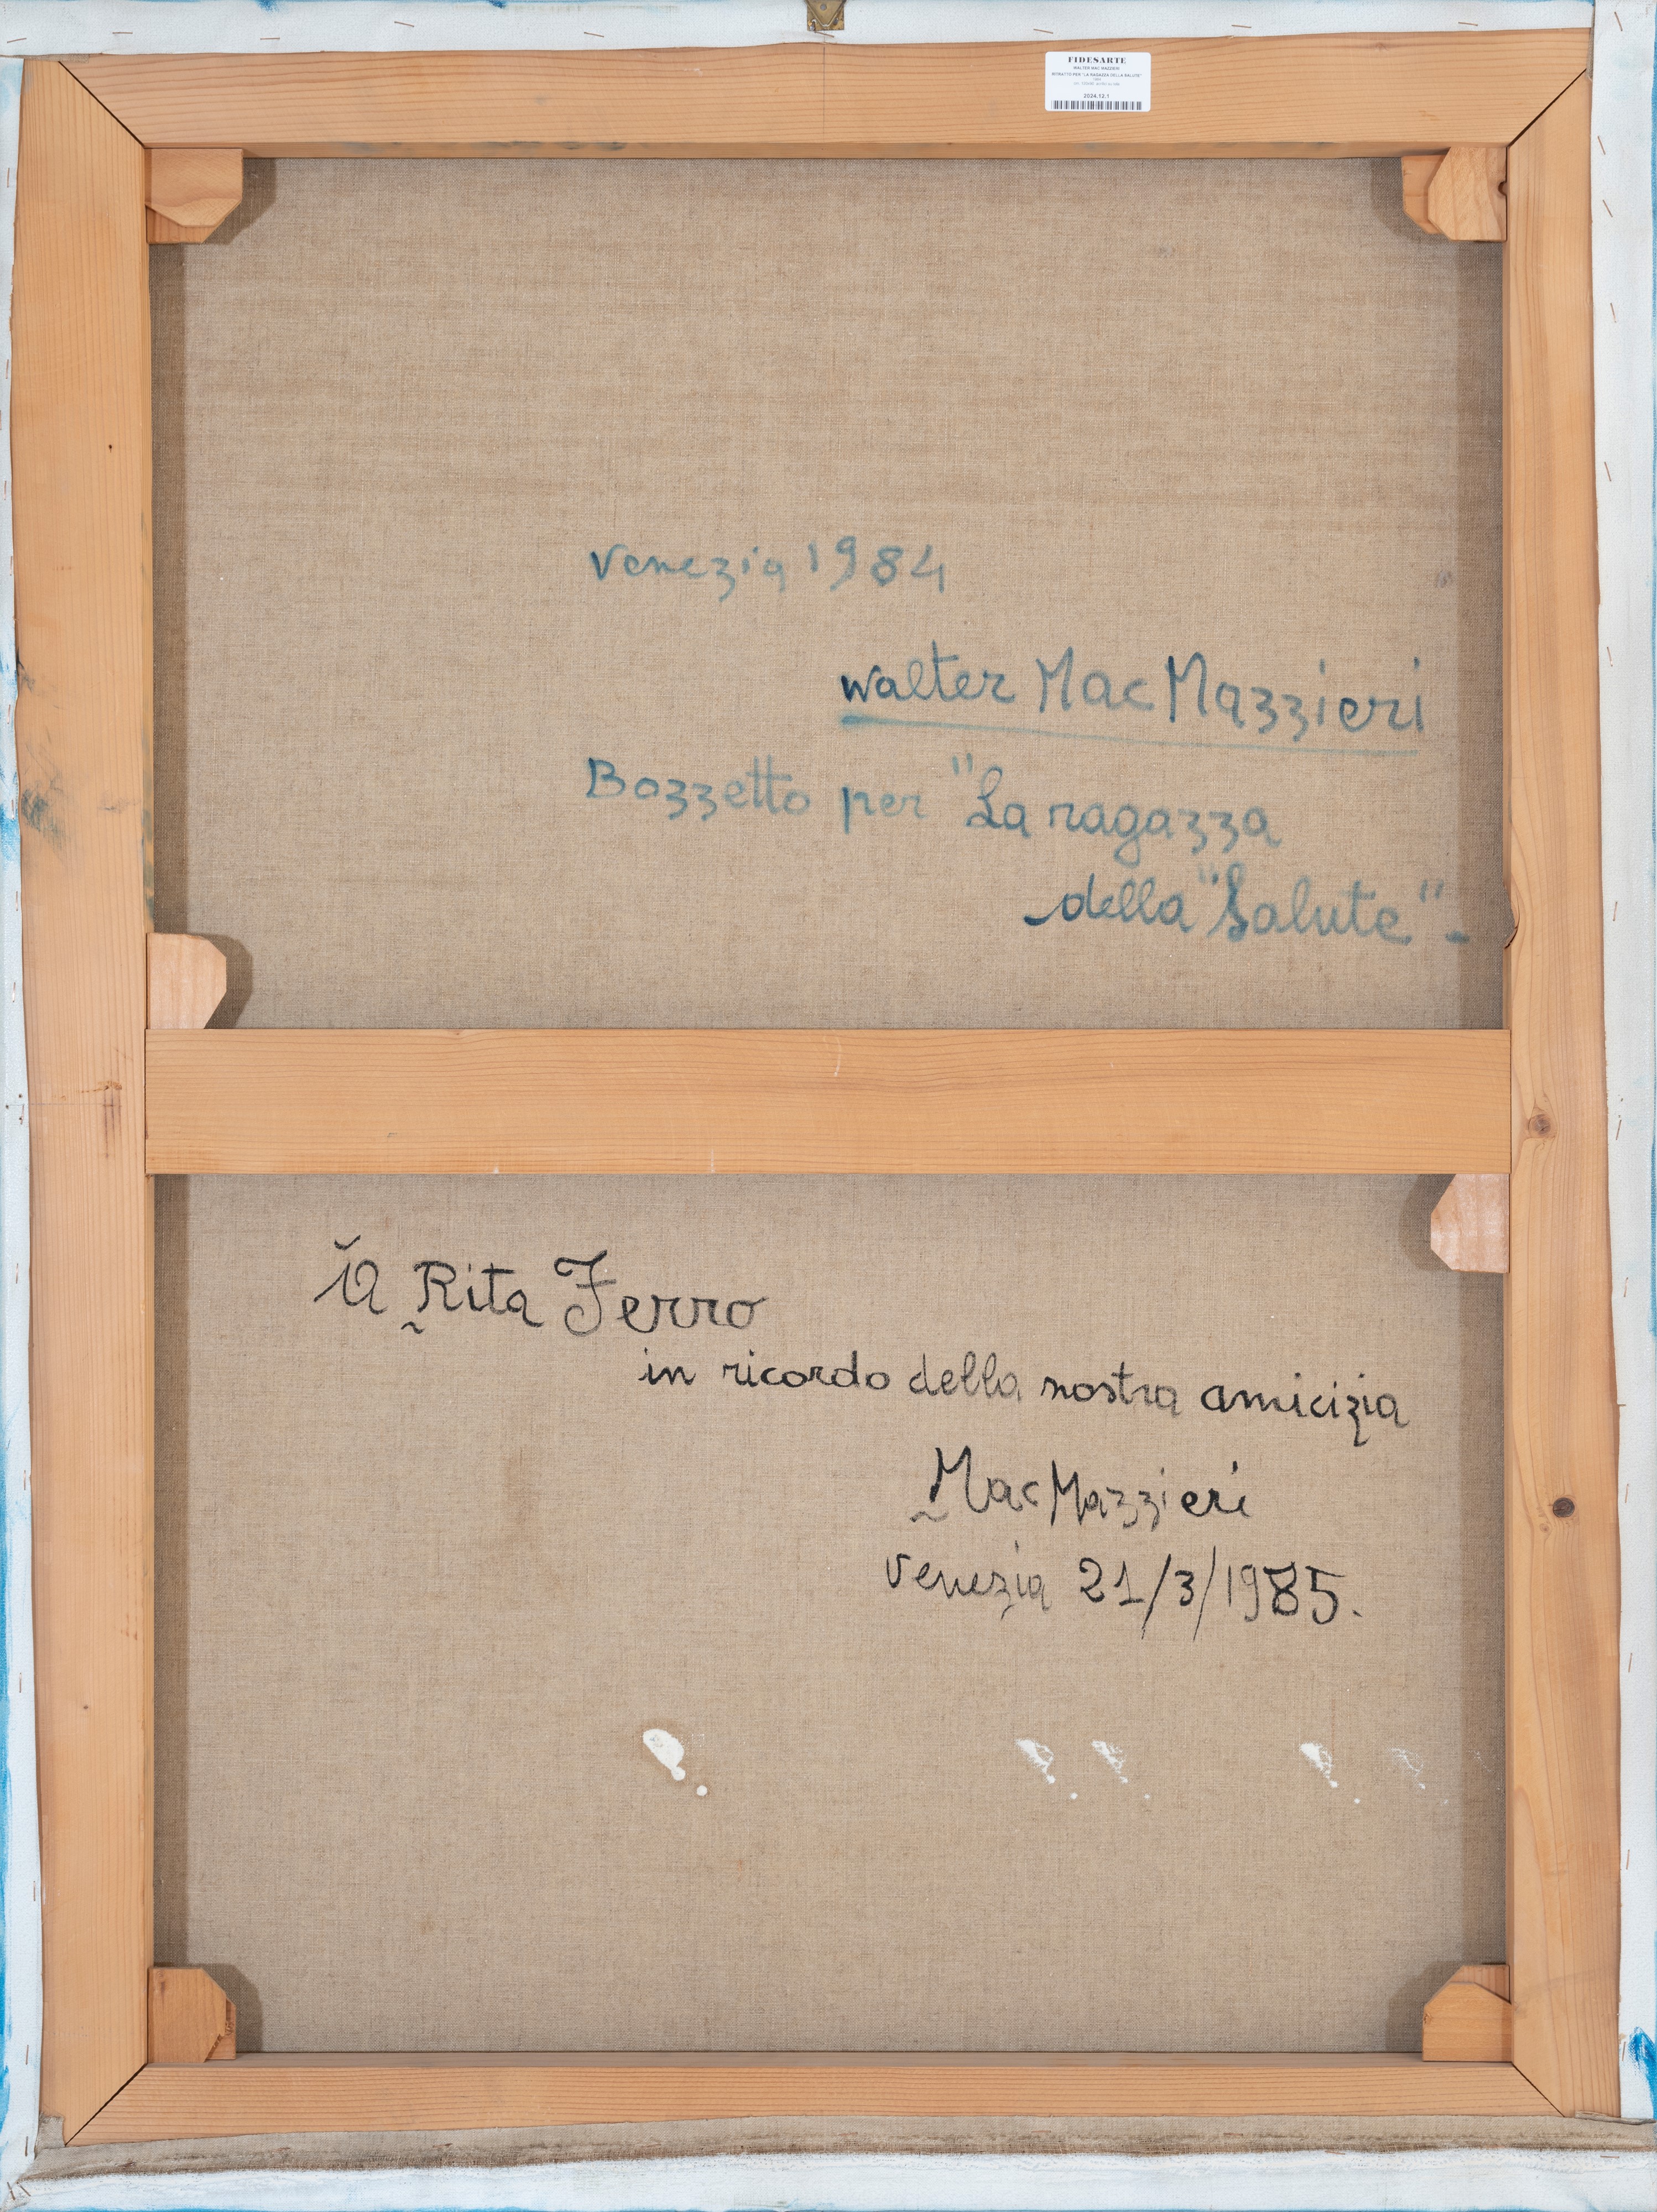 FIDESARTE
WALTER MAC MAZZIERI
BOZZETTO PER "LA RAGAZZA DELLA SALUTE"
2024.12.1
Venezia 1984
Walter Mac Mazzieri
Bozzetto per "La ragazza
della "Salute" -
A Rita Ferro
in ricordo della nostra amicizia
Mac Mazzieri
Venezia 21/3/1985.